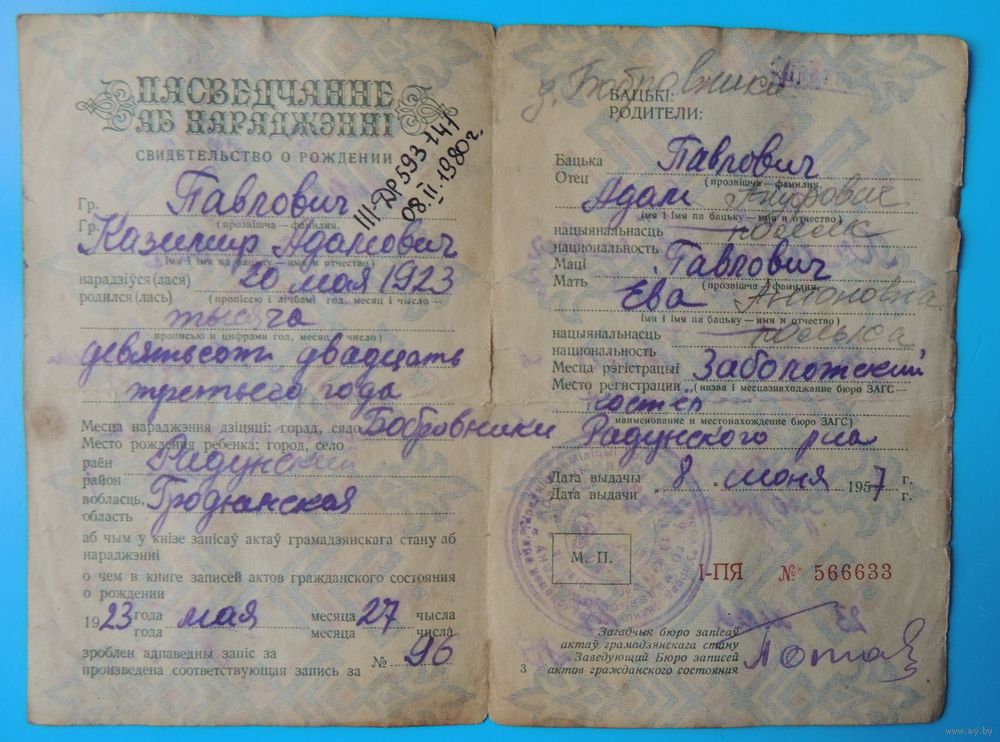 ПАСВЕДЧАННЕ
АБ НАРАДЖЭННІ
СВИДЕТЕЛЬСТВО О РОЖДЕНИИ
III-ДР 593741
08.II.1980г.
Гр. Павлович
(прозвішча — фамилия,
Гр. Казимир Адамович
імя і імя па бацьку — имя и отчество)
нарадзіўся (лася) 20 мая 1923
родился(лась) (прописсю і лічбамі год, месяц і число —
тысяча
прописью и цифрами год, месяц, число)
девятьсот двадцать
третьего года
Месца нараджэння дзіцяці: горад, сяло Бобровники
Место рождения ребенка: город, село
раён Радунский
район
вобласць Гродненская
область
аб чым ў кнізе запісаў актаў грамадзянскага стану аб
нараджэнні
о чем в книге записей актов гражданского состояния
о рождении
1923 года мая месяца 27 чысла
года месяца числа
зроблен адпаведны запіс за
произведена соответствующая запись за № 96
д. Бобровники
БАЦЬКІ:
РОДИТЕЛИ:
Бацька Павлович
Отец (прозвішча — фамилия,
Адам
імя і імя па бацьку — имя и отчество)
нацыянальнасць поляк
национальность
Маці Павлович
Мать (прозвішча — фамилия,
Ева Антоновна
імя і імя па бацьку — имя и отчество)
нацыянальнасць полька
национальность
Месца рэгістрацыі Заболотский
Место регистрации (назва і месцазнаходжание бюро ЗАГС —
костёл
наименование и местонахождение бюро ЗАГС)
Радунского р-на
Дата выдачы
Дата выдачи „8„ июня 1957 г.
г.
М. П.
І-ПЯ № 566633
Загадчык бюро запісаў
актаў грамадзянскага стану
Заведующий Бюро записей
актов гражданского состояния
3
www.ay.by